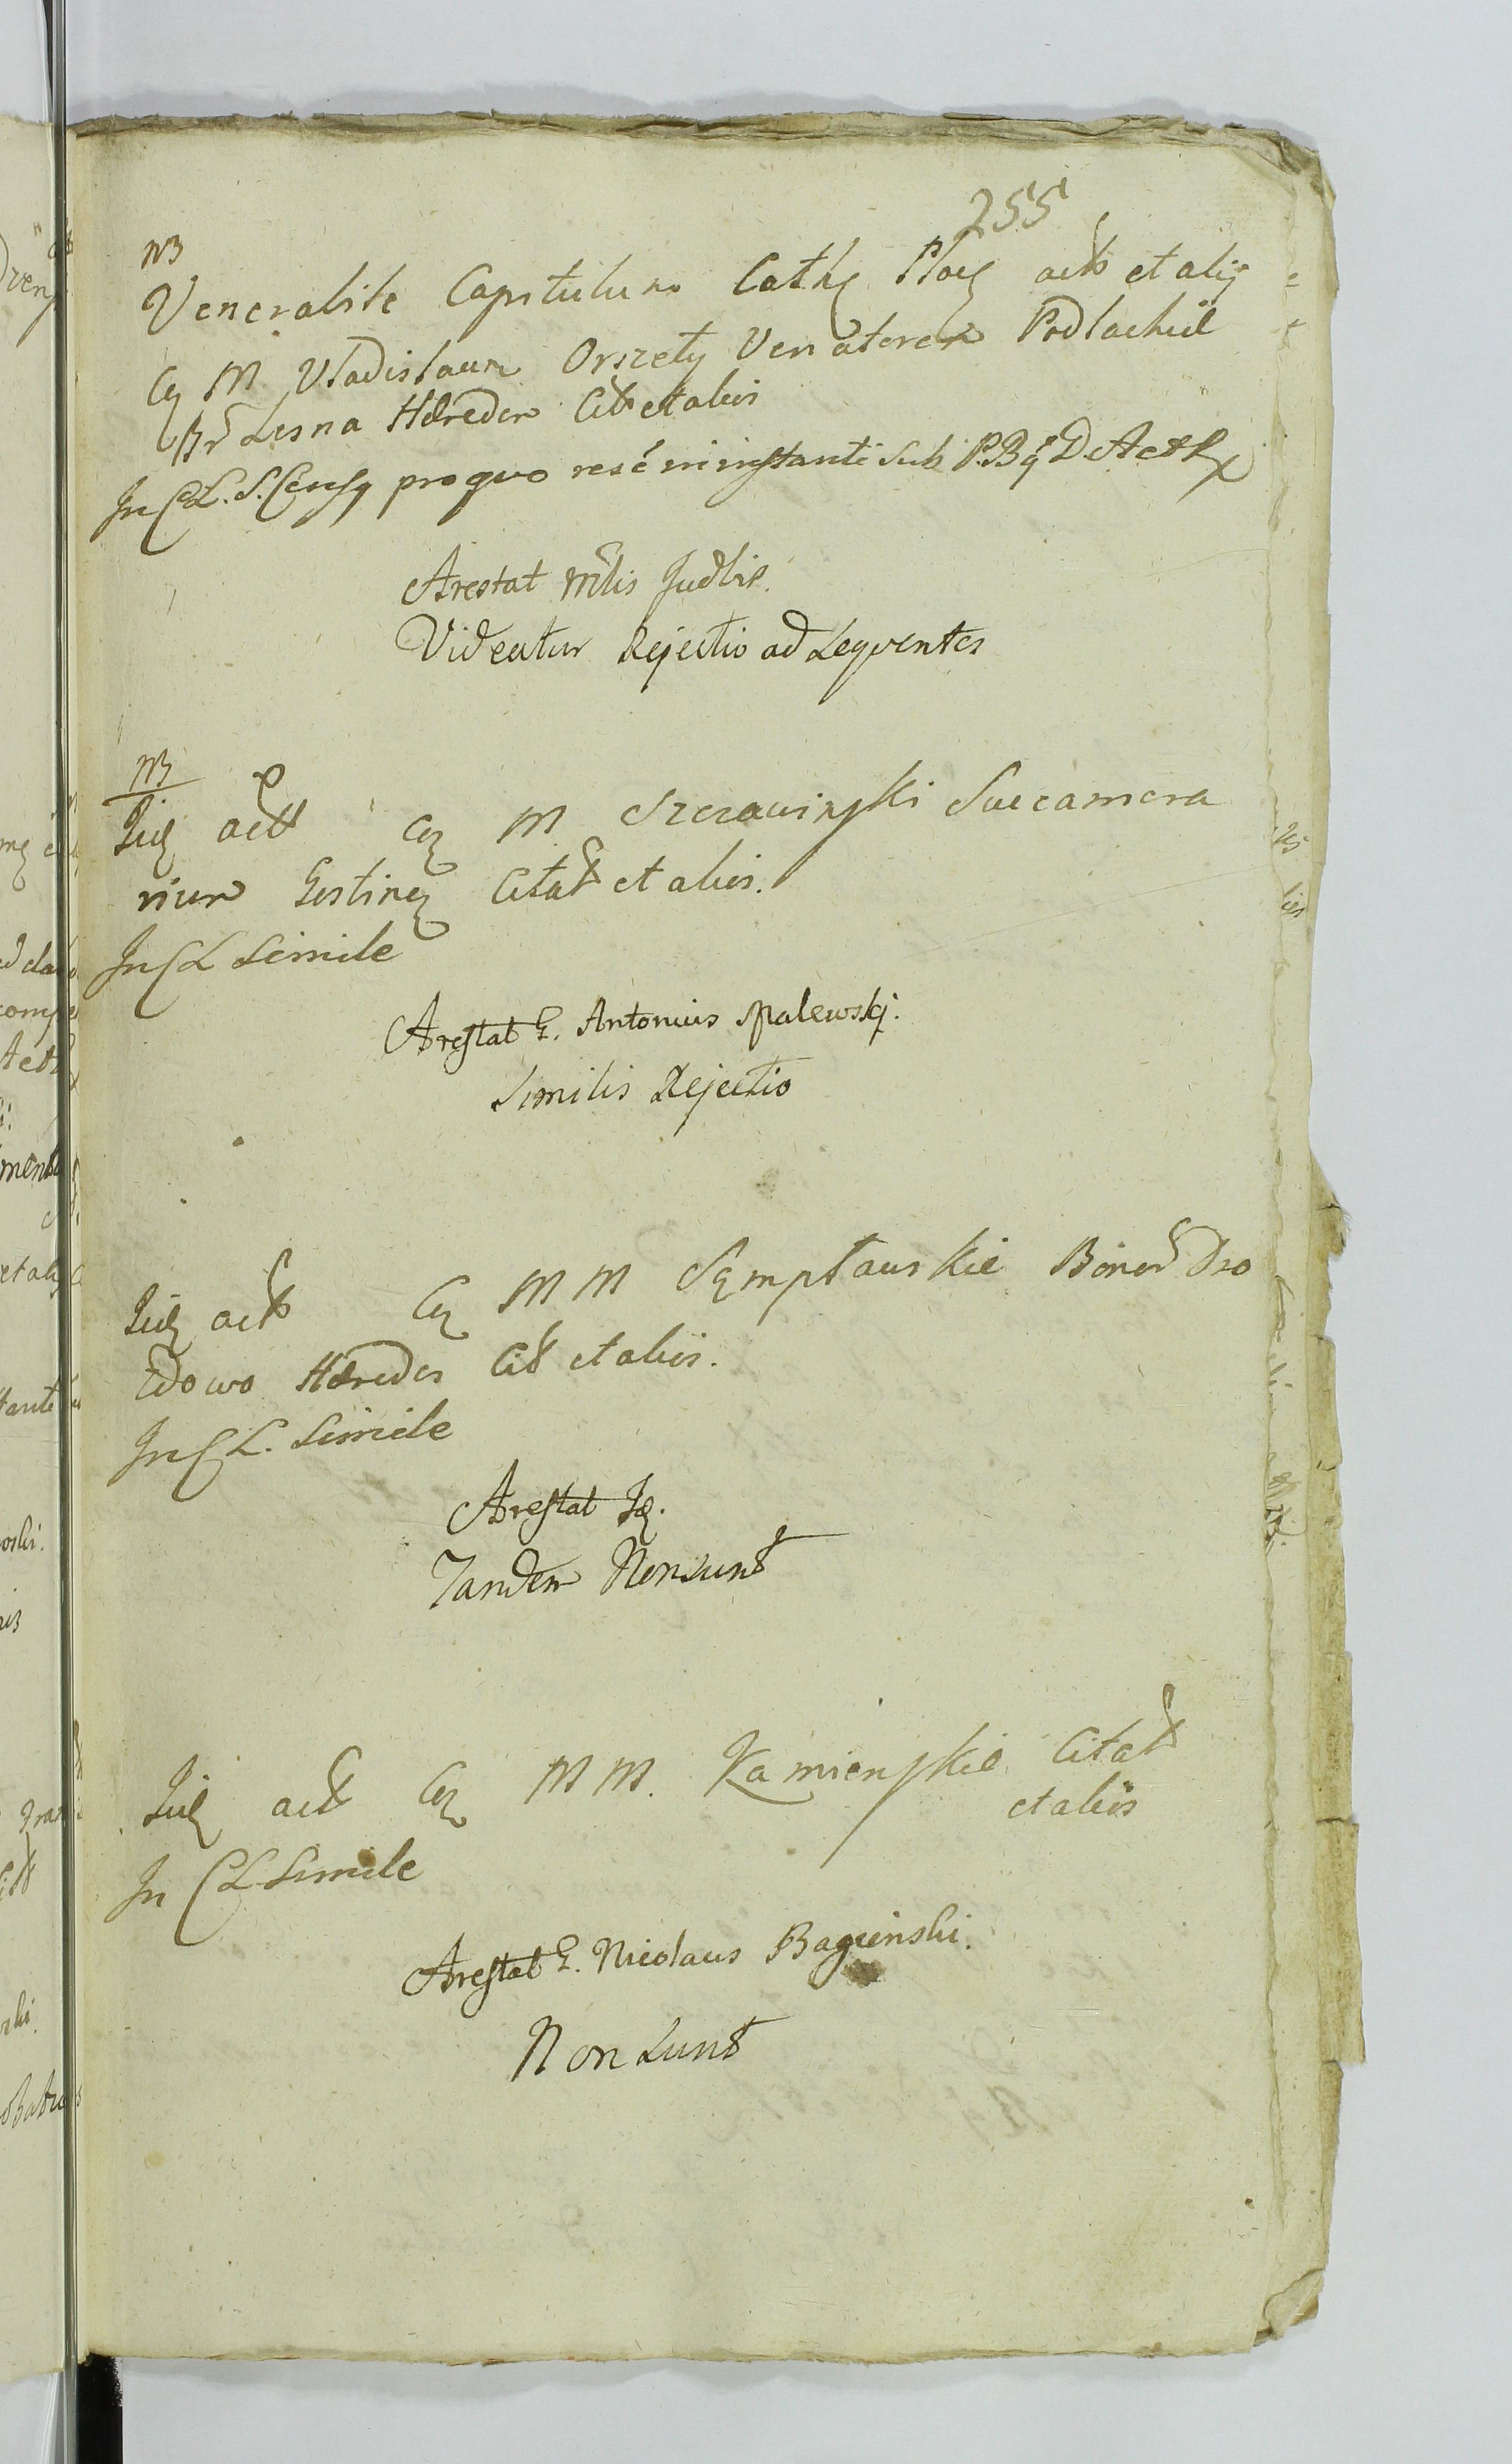 255
NB
Venerabile Capitulum Cathg Plocg actt et alij
Cg M Vladislaum Orszety Venatorem Podlachiæ
Br Lesna Hæredem Citt et alios
In CL. S. Censg pro quo rese ministanti sub P.Bg D Actt
Arestat Mtlis Judlis.
Videatur Rejectio ad Seqventes
NB
Iidg actt Cg M Szczawinski Succamera
rium Gostineg Citatt et alios.
In CL Simile
Arestat G. Antonius Malewskj.
Similis Rejectio
Iidg actt Cg MM Sęmpławskie Bonor Dro
zdowo Hæredes Citt et alios.
In CL. Simile
Arestat Ig.
Tandem Non sunt
Iidg actt Cg MM. Kamienskie Citatt
et alios
In CL Simile
Arestat G. Nicolaus Bagienski.
Non sunt